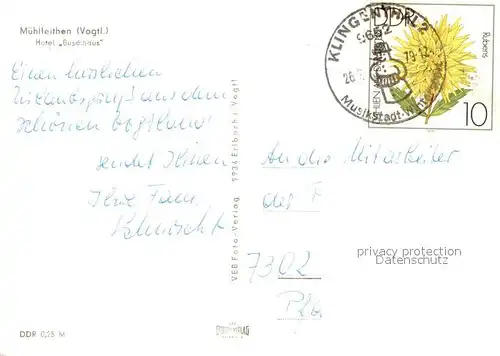 Mühlleithen (Vogtl.)
Hotel „Buschhaus"
Einen herzlichen
Urlaubsgruß aus dem
schönen Vogtland
sendet Ihnen
Ihre Fam.
DDR 0,25 M
VEB Foto-Verlag 9934 Erlbach i. Vogtl
KLINGENTHAL 2
9652
Musikstadt
DDR
Rubens
10
An die Mitarbeiter
der F
7302
privacy protection
Datenschutz